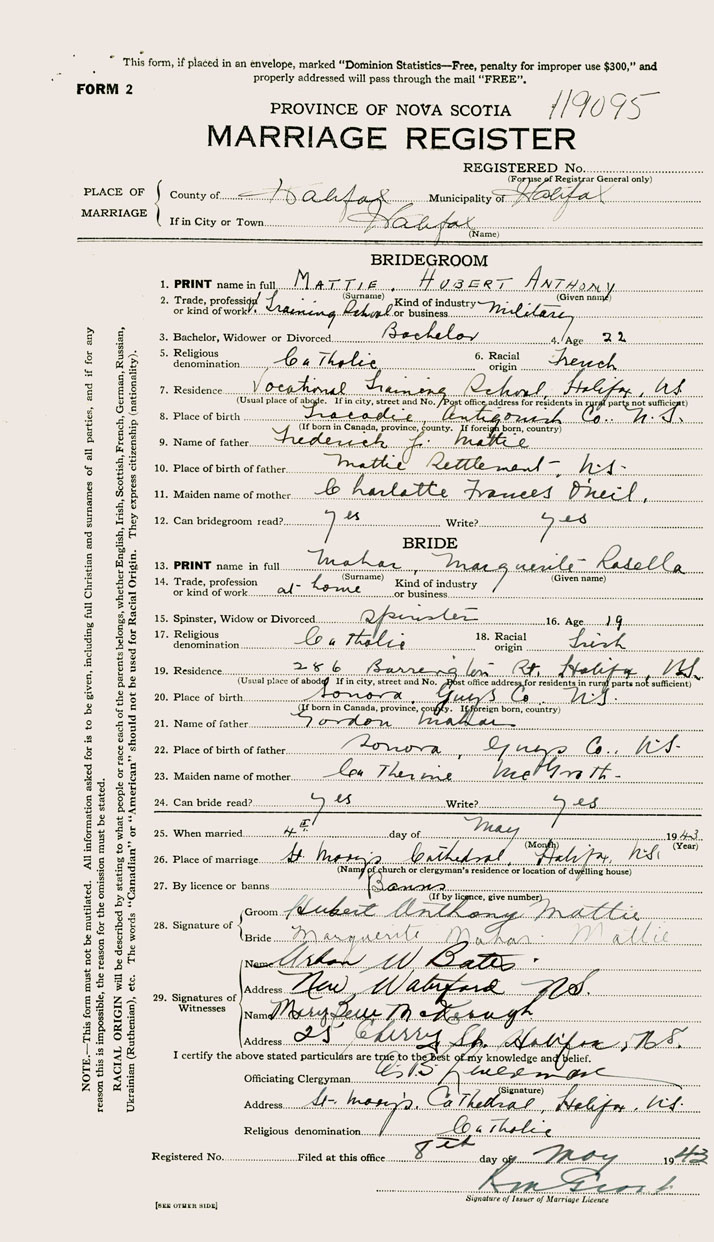 This form, if placed in an envelope, marked "Dominion Statistics—Free, penalty for improper use $300," and
properly addressed will pass through the mail "FREE".
FORM 2
119095
PROVINCE OF NOVA SCOTIA
MARRIAGE REGISTER
REGISTERED No.
(For use of Registrar General only)
PLACE OF MARRIAGE
County of Halifax Municipality of Halifax
If in City or Town Halifax
(Name)
BRIDEGROOM
1. PRINT name in full MATTIE, HUBERT ANTHONY
(Surname) (Given name)
2. Trade, profession or kind of work Training School Kind of industry or business Military
3. Bachelor, Widower or Divorced Bachelor 4. Age 22
5. Religious denomination Catholic 6. Racial origin French
7. Residence Vocational Training School, Halifax, NS
(Usual place of abode. If in city, street and No. Post office address for residents in rural parts not sufficient)
8. Place of birth Tracadie, Antigonish Co., N.S.
(If born in Canada, province, county. If foreign born, country)
9. Name of father Frederick J. Mattie
10. Place of birth of father Mattie Settlement, N.S.
11. Maiden name of mother Charlotte Frances O'neil,
12. Can bridegroom read? yes Write? yes
BRIDE
13. PRINT name in full Mahar, Marguerite Rosella
(Surname) (Given name)
14. Trade, profession or kind of work at-home Kind of industry or business
15. Spinster, Widow or Divorced Spinster 16. Age 19
17. Religious denomination Catholic 18. Racial origin Irish
19. Residence 286 Barrington St. Halifax, N.S.
(Usual place of abode. If in city, street and No. Post office address for residents in rural parts not sufficient)
20. Place of birth Sonora, Guys Co. N.S.
(If born in Canada, province, county. If foreign born, country)
21. Name of father Gordon Mahar
22. Place of birth of father Sonora, Guys Co., N.S.
23. Maiden name of mother Catherine McGrath
24. Can bride read? yes Write? yes
25. When married 4th day of May 1943
(Month) (Year)
26. Place of marriage St. Mary's Cathedral, Halifax, N.S.
(Name of church or clergyman's residence or location of dwelling house)
27. By licence or banns Banns
(If by licence, give number)
28. Signature of
Groom Hubert Anthony Mattie
Bride Marguerite Mahar Mattie
29. Signatures of Witnesses
Name W Bates
Address New Waterford N.S.
Name Mary McKeough
Address 25 Cherry St. Halifax, N.S.
I certify the above stated particulars are true to the best of my knowledge and belief.
Officiating Clergyman
(Signature)
Address St. Mary's Cathedral, Halifax, N.S.
Religious denomination Catholic
Registered No. Filed at this office 8th day of May 1943
Signature of Issuer of Marriage Licence
[SEE OTHER SIDE]
NOTE.—This form must not be mutilated. All information asked for is to be given, including full Christian and surnames of all parties, and if for any
reason this is impossible, the reason for the omission must be stated.
RACIAL ORIGIN will be described by stating to what people or race each of the parents belongs, whether English, Irish, Scottish, French, German, Russian,
Ukrainian (Ruthenian), etc. The words "Canadian" or "American" should not be used for Racial Origin. They express citizenship (nationality).